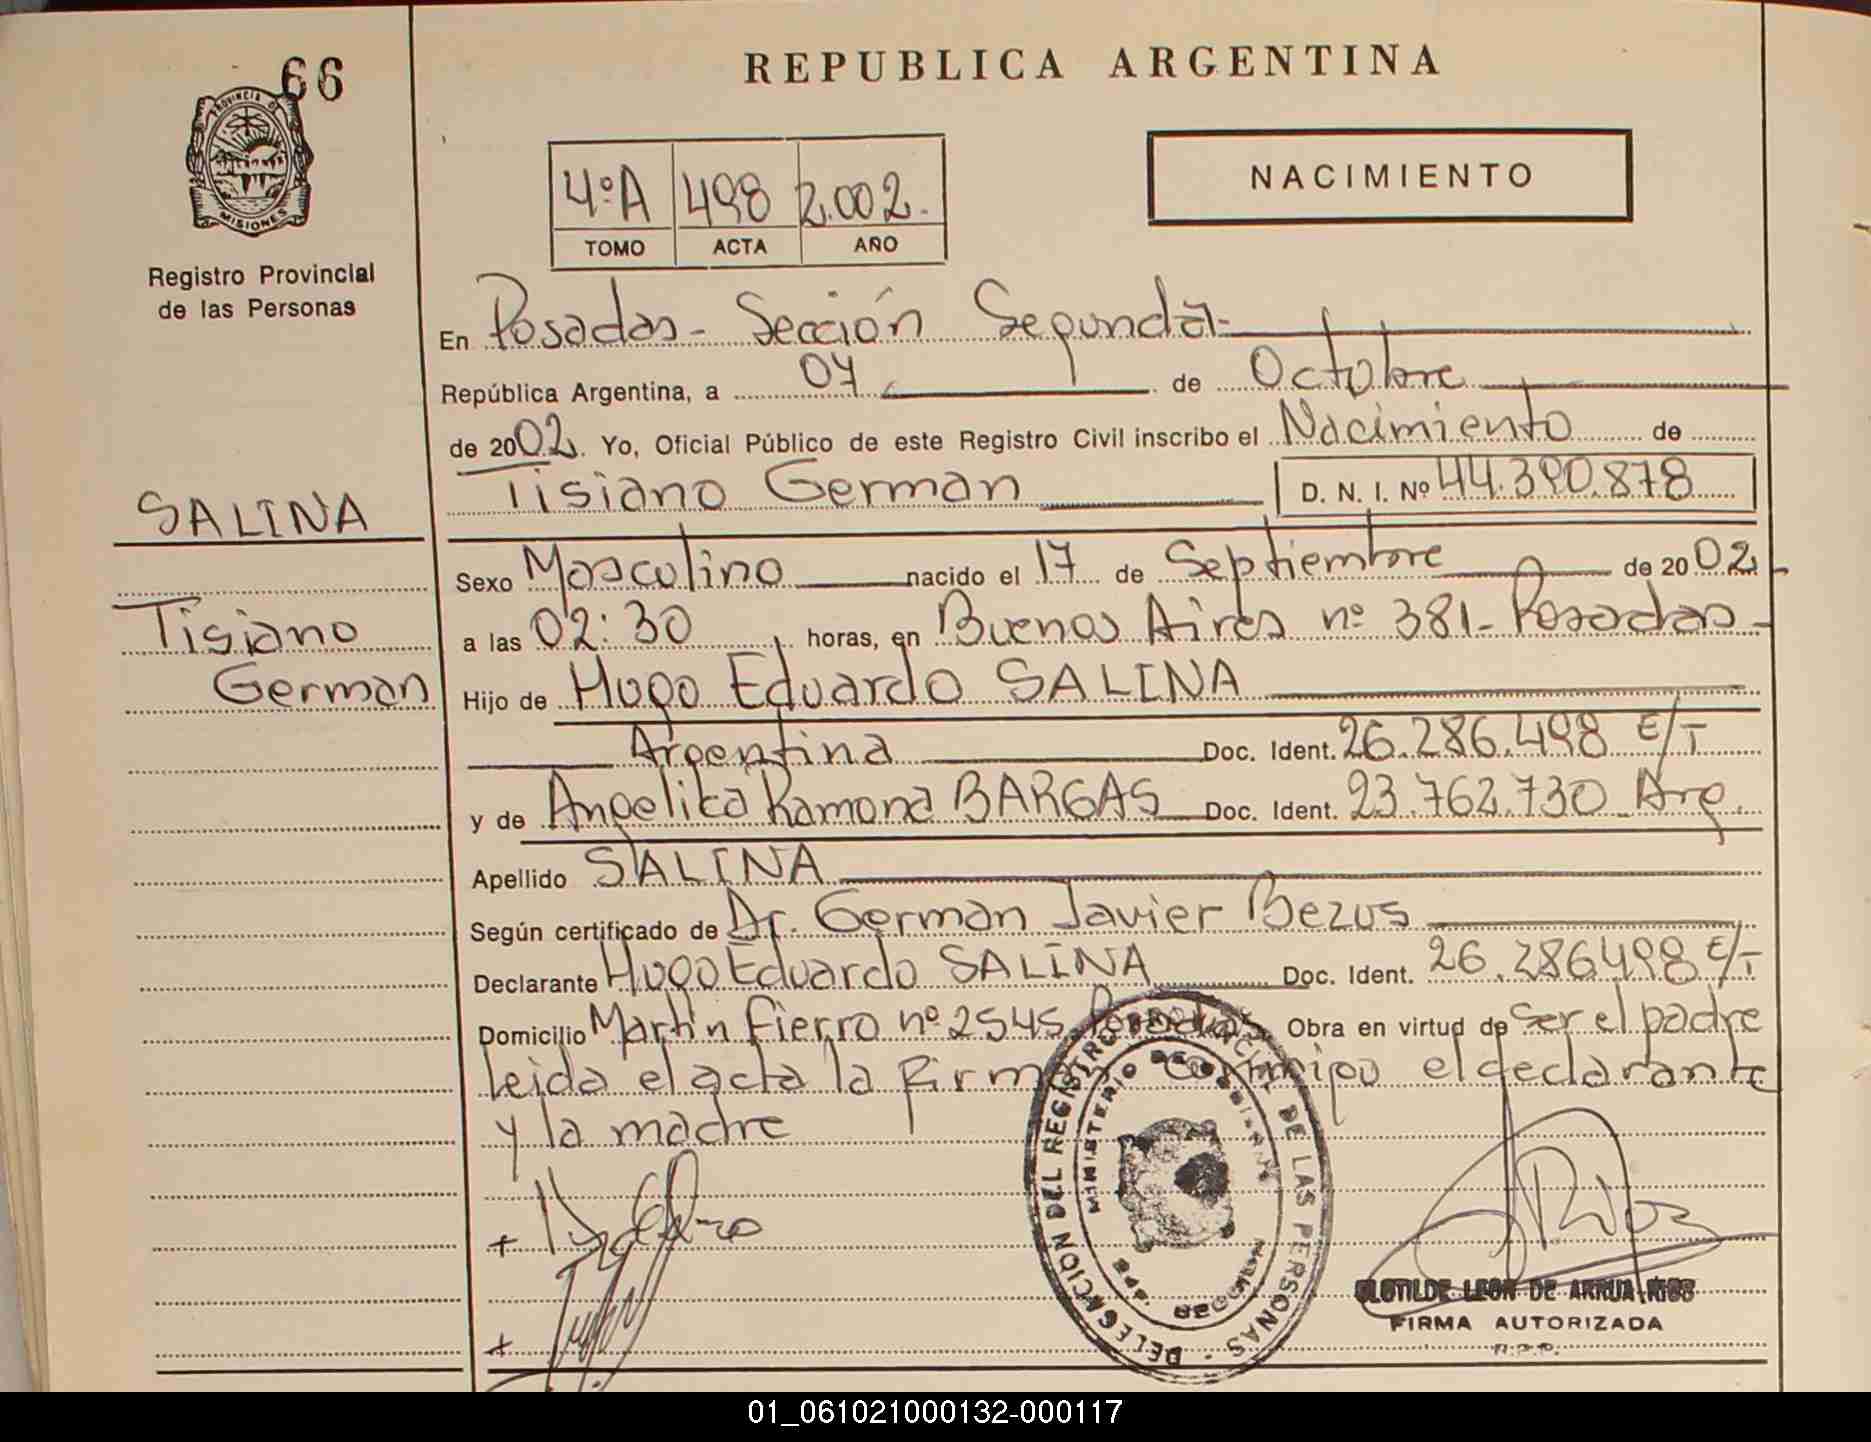 66
REPUBLICA ARGENTINA
PROVINCIA DE
MISIONES
Registro Provincial
de las Personas
4ºA 498 2.002.
TOMO ACTA AÑO
NACIMIENTO
En Posadas - Sección Segunda -
República Argentina, a 07 de Octubre
de 2002. Yo, Oficial Público de este Registro Civil inscribo el Nacimiento de
Tisiano German D. N. I. Nº 44.390.878
SALINA
Sexo Masculino nacido el 17 de Septiembre de 2002
Tisiano
a las 02:30 horas, en Buenos Aires nº 381 - Posadas -
German
Hijo de Hugo Eduardo SALINA
Argentina Doc. Ident. 26.286.498 E/T
y de Angelica Ramona BARGAS Doc. Ident. 23.762.730 Arg.
Apellido SALINA
Según certificado de Dr. German Javier Bezus
Declarante Hugo Eduardo SALINA Doc. Ident. 26.286498 E/T
Domicilio Martin Fierro nº 2545 Posadas Obra en virtud de ser el padre
leida el acta la firman conmigo el declarante
y la madre
DELEGACION DEL REGISTRO PROVINCIAL DE LAS PERSONAS
MINISTERIO DE GOBIERNO
CLOTILDE LEON DE ARRUA
FIRMA AUTORIZADA
R.P.P.
01_061021000132-000117